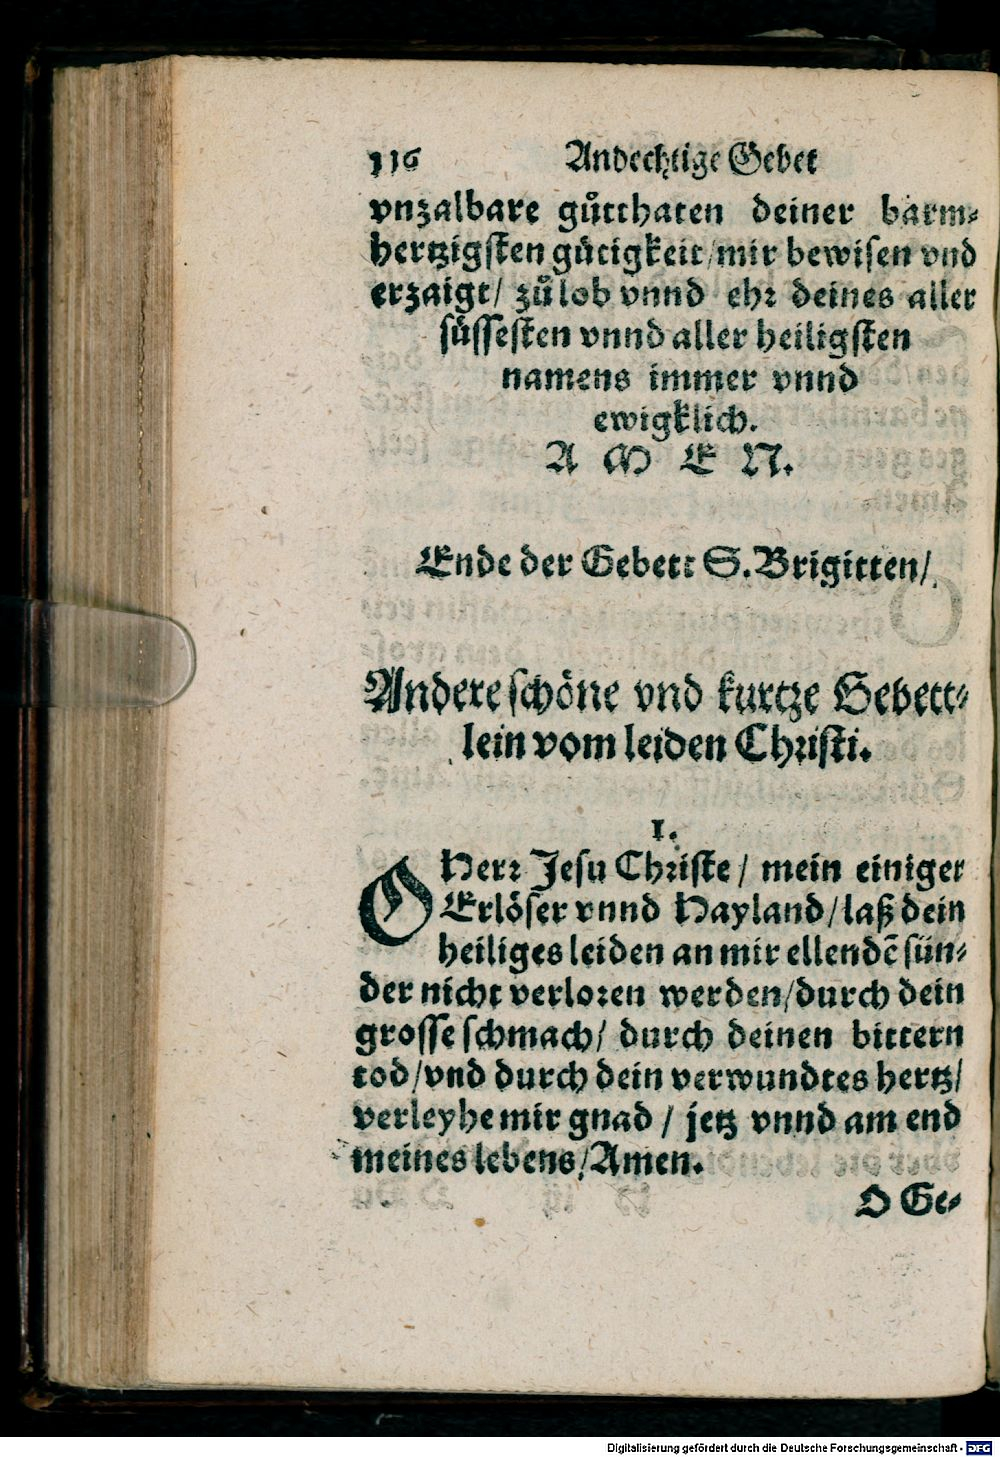 116 Andechtige Gebet
vnzalbare guͦtthaten deiner barm-
hertzigsten gütigkeit/mir bewisen vnd
erzaigt/ zuͦ lob vnnd ehr deines aller
süssesten vnnd aller heiligsten
namens immer vnnd
ewigklich.
A M E N.
Ende der Gebett S. Brigitten/
Andere schöne vnd kurtze Gebett-
lein vom leiden Christi.
1.
O Herr Jesu Christe/ mein einiger
Erlöser vnnd Hayland/laß dein
heiliges leiden an mir ellendē sün-
der nicht verloren werden/durch dein
grosse schmach/ durch deinen bittern
tod/vnd durch dein verwundtes hertz/
verleyhe mir gnad / jetz vnnd am end
meines lebens/Amen.
O Ge-
Digitalisierung gefördert durch die Deutsche Forschungsgemeinschaft - DFG